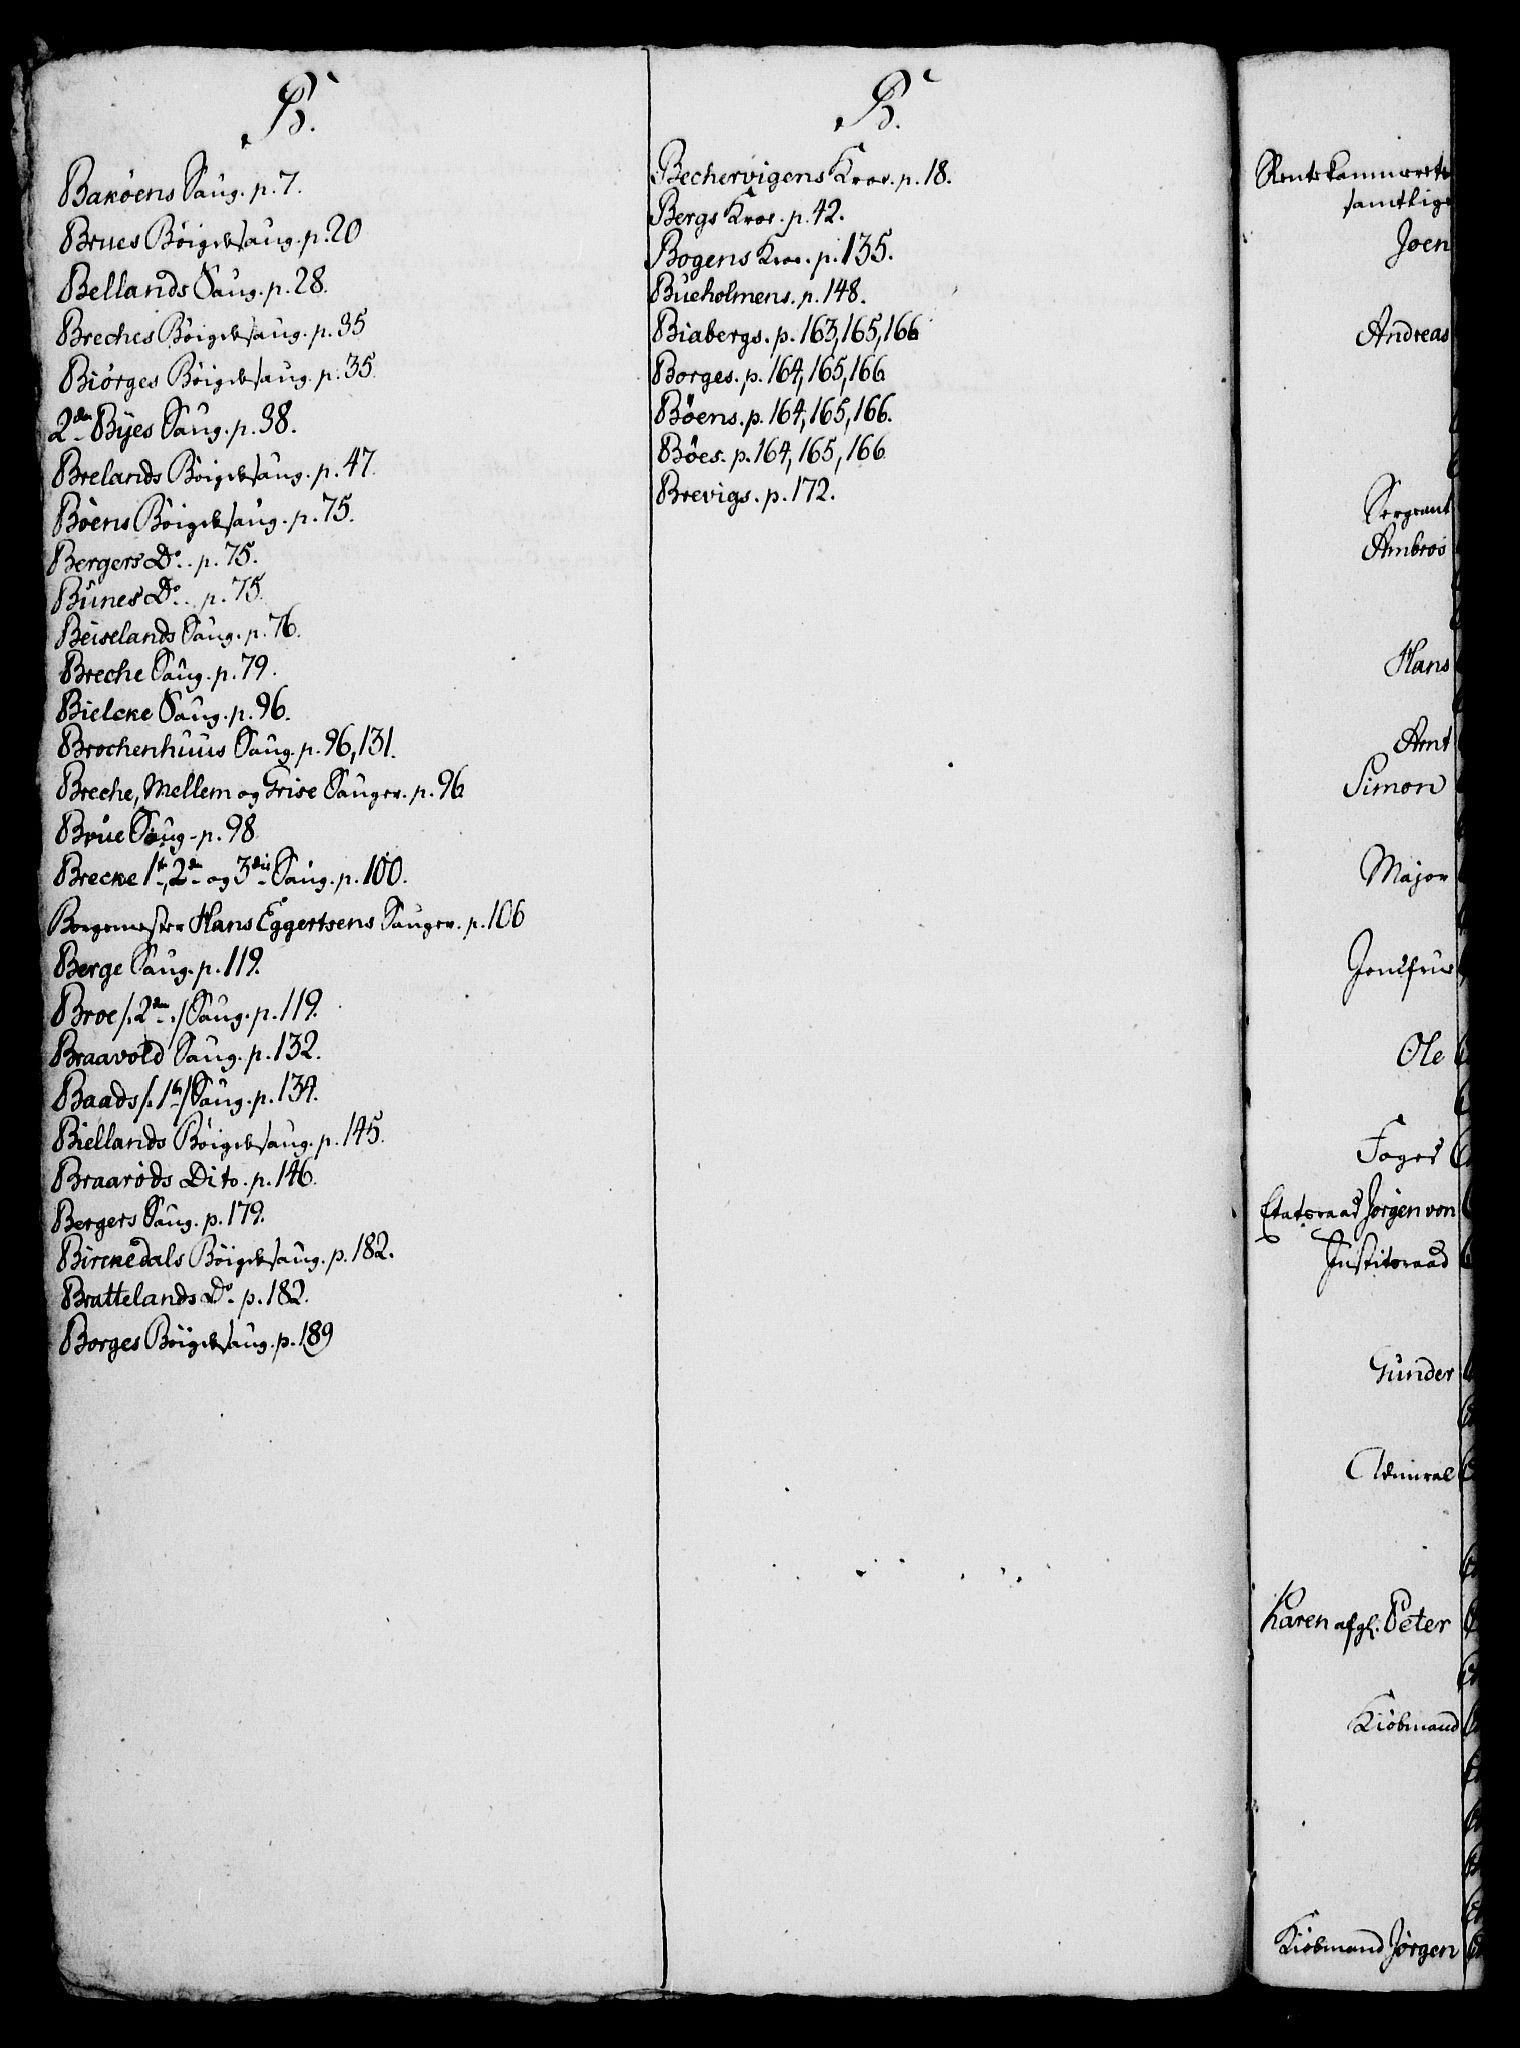 B.
Bakøens Saug. p. 7.
Brues Bøigdesaug. p. 20
Bellands Saug. p. 28.
Breches Bøigdesaug. p. 35
Biørges Bøigdesaug. p. 35.
2den Byes Saug. p. 38.
Brelands Bøigdesaug. p. 47.
Bøens Bøigdesaug. p. 75.
Bergers Do. p. 75.
Bunes Do. p. 75.
Beiselands Saug. p. 76.
Breche Saug. p. 79.
Bielcke Saug. p. 96.
Brochenhuus Saug. p. 96, 131.
Breche, Mellem og Grise Sauger. p. 96.
Brue Saug. p. 98.
Brecke 1te, 2den og 3die Saug. p. 100.
Borgemester Hans Eggertsens Sauger. p. 106
Berge Saug. p. 119.
Broe /: 2den :/ Saug. p. 119.
Braavold Saug. p. 132.
Baads /: 1te :/ Saug. p. 134.
Biellands Bøigdesaug. p. 145.
Braarøds Dito. p. 146.
Bergers Saug. p. 179.
Birckedals Bøigdesaug. p. 182.
Brattelands Do. p. 182.
Borges Bøigdesaug. p. 189
B.
Bechervigens Kroe. p. 18.
Bergs Kroe. p. 42.
Bogens Kroe. p. 135.
Bueholmens. p. 148.
Biabergs. p. 163, 165, 166
Borges. p. 164, 165, 166
Bøens. p. 164, 165, 166.
Bøes. p. 164, 165, 166
Brevigs. p. 172.
Rentekammerets
samtlige
Joen
Andreas
Sergeant
Ambros
Hans
Arnt
Simon
Major
Jomfrue
Ole
Foged
Etatsraad Jørgen von
Justitsraad
Gunder
Admiral
Karen afgl. Peter
Kiøbmand
Kiøbmand Jørgen